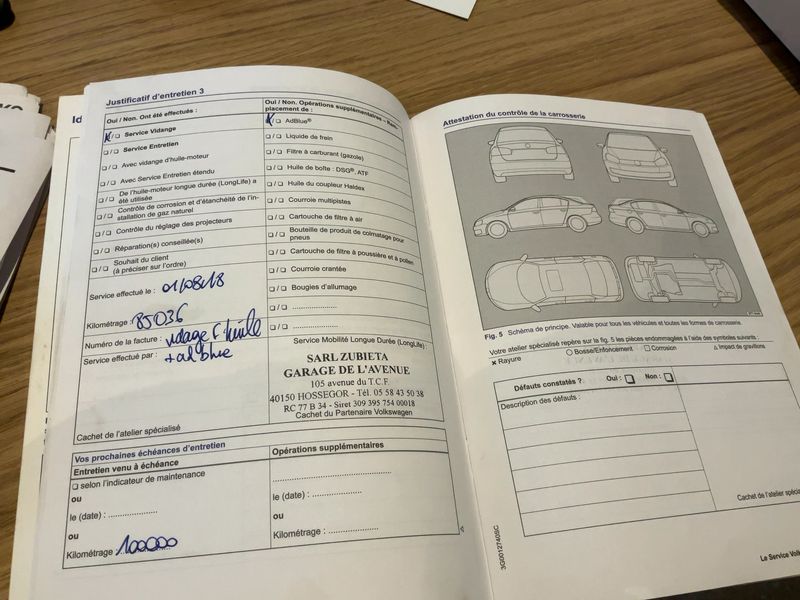 Id
Justificatif d'entretien 3
Oui / Non. Ont été effectués :
☑/❏ Service Vidange
❏/❏ Service Entretien
❏/❏ Avec vidange d'huile-moteur
❏/❏ Avec Service Entretien étendu
❏/❏ De l'huile-moteur longue durée (LongLife) a
été utilisée
❏/❏ Contrôle de corrosion et d'étanchéité de l'in-
stallation de gaz naturel
❏/❏ Contrôle du réglage des projecteurs
❏/❏ Réparation(s) conseillée(s)
❏/❏ Souhait du client
(à préciser sur l'ordre)
Service effectué le : 01/08/18
Kilométrage : 85036
Numéro de la facture : vidage F. huile
Service effectué par : + ad blue
Cachet de l'atelier spécialisé
Oui / Non. Opérations supplémentaires – Rem-
placement de :
☑/❏ AdBlue®
❏/❏ Liquide de frein
❏/❏ Filtre à carburant (gazole)
❏/❏ Huile de boîte : DSG®, ATF
❏/❏ Huile du coupleur Haldex
❏/❏ Courroie multipistes
❏/❏ Cartouche de filtre à air
❏/❏ Bouteille de produit de colmatage pour
pneus
❏/❏ Cartouche de filtre à poussière et à pollen
❏/❏ Courroie crantée
❏/❏ Bougies d'allumage
❏/❏ ....................
❏/❏ ....................
Service Mobilité Longue Durée (LongLife) :
SARL ZUBIETA
GARAGE DE L'AVENUE
105 avenue du T.C.F.
40150 HOSSEGOR - Tél. 05 58 43 50 38
RC 77 B 34 - Siret 309 395 754 00018
Cachet du Partenaire Volkswagen
Vos prochaines échéances d'entretien
Entretien venu à échéance
❏ selon l'indicateur de maintenance
ou
le (date) : ................
ou
Kilométrage 100000
Opérations supplémentaires
................................
le (date) : ................
ou
Kilométrage : ................
Attestation du contrôle de la carrosserie
Fig. 5 Schéma de principe. Valable pour tous les véhicules et toutes les formes de carrosserie.
Votre atelier spécialisé repère sur la fig. 5 les pièces endommagées à l'aide des symboles suivants :
× Rayure ○ Bosse/Enfoncement ☐ Corrosion △ Impact de gravillons
Défauts constatés ? Oui : ❏ Non : ❏
Description des défauts :
Cachet de l'atelier spécia
3G0012740SC
Le Service Volk